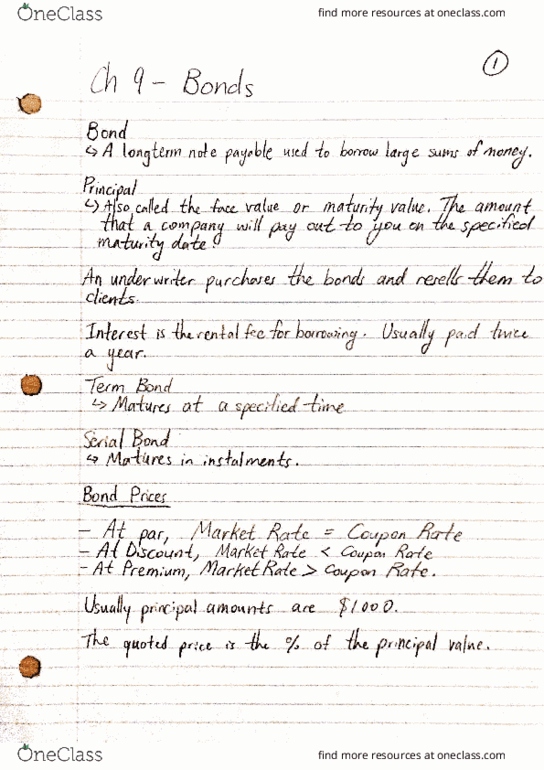 OneClass
find more resources at oneclass.com
1
Ch 9 - Bonds
Bond
↳ A longterm note payable used to borrow large sums of money.
Principal
↳ Also called the face value or maturity value. The amount
that a company will pay out to you on the specified
maturity date.
An underwriter purchases the bonds and resells them to
clients.
Interest is the rental fee for borrowing. Usually paid twice
a year.
Term Bond
↳ Matures at a specified time
Serial Bond
↳ Matures in instalments.
Bond Prices
- At par, Market Rate = Coupon Rate
- At Discount, Market Rate < Coupon Rate
- At Premium, Market Rate > Coupon Rate.
Usually principal amounts are $1000.
The quoted price is the % of the principal value.
OneClass
find more resources at oneclass.com